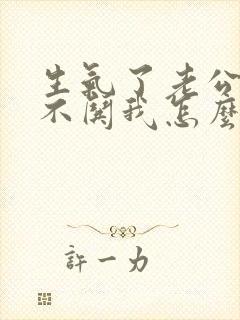 生氣了老公
不關我怎麼
許一力